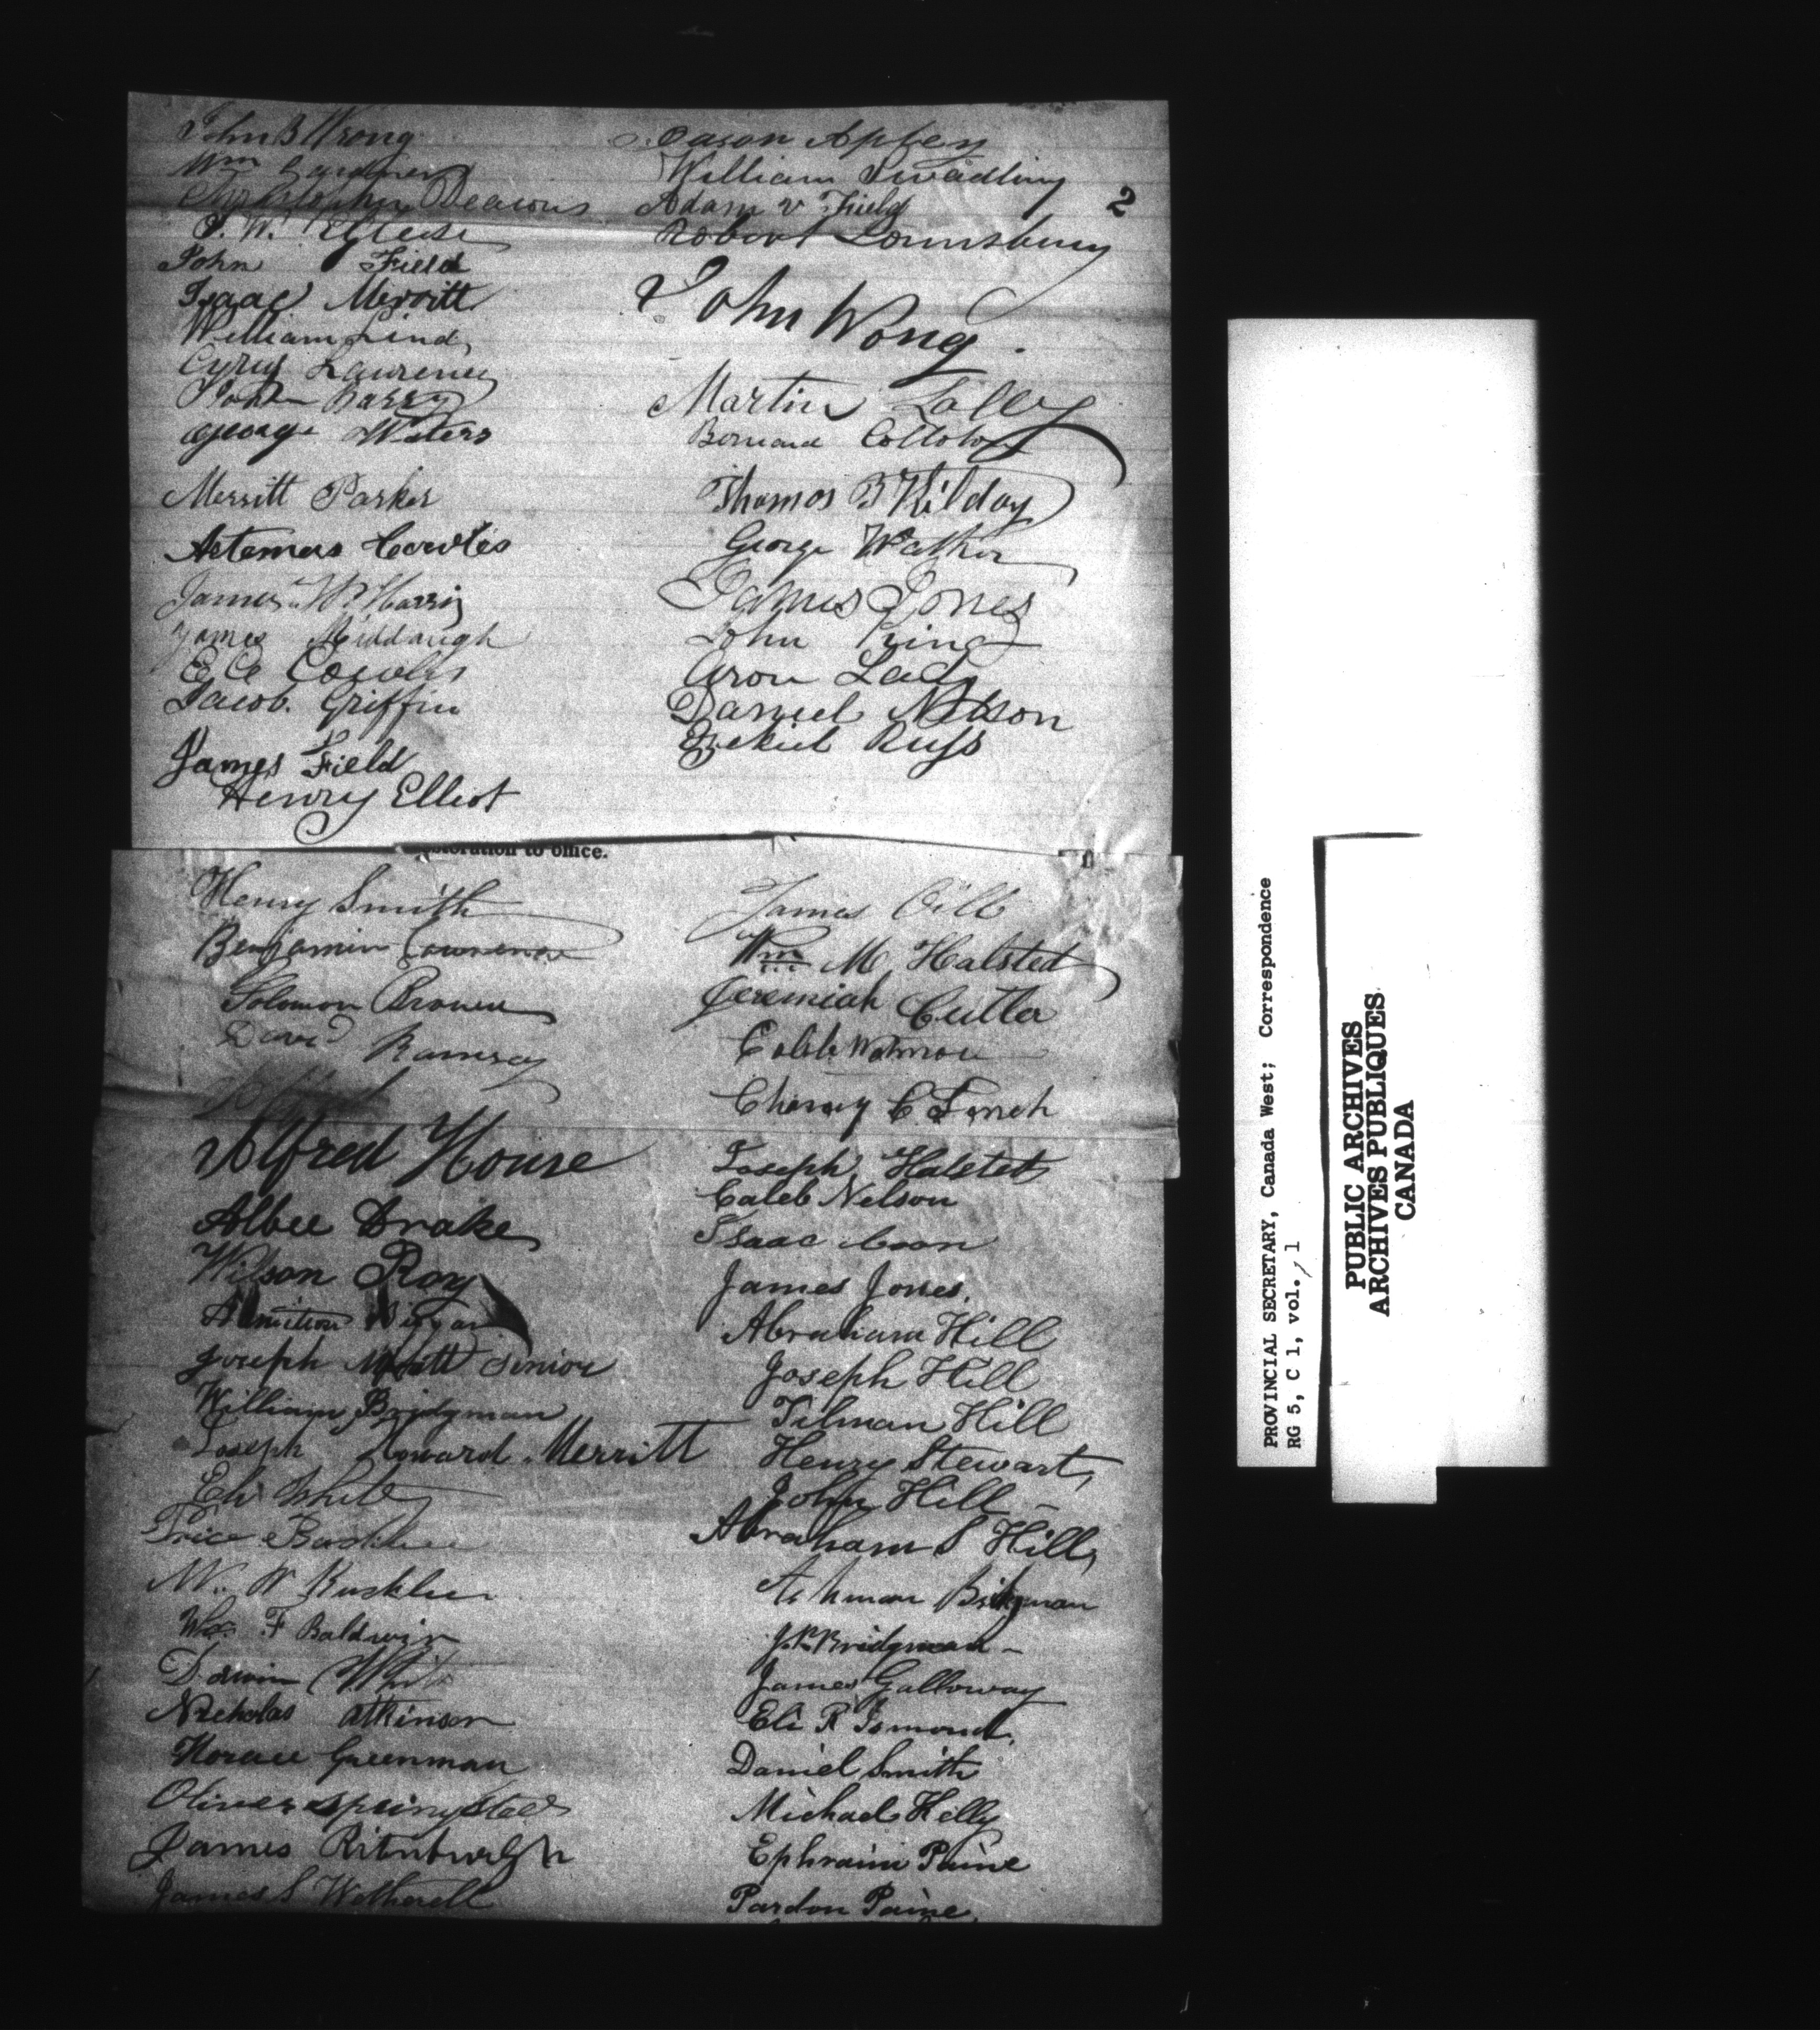 John B Wrong
Wm Gardner
Christopher Deacons
John Field
Isaac Merritt
William Lind
Cyrus Lawrence
John Barry
George Waters
Merritt Parker
Artemas Cowles
James W Harris
James Middaugh
E C Cowles
Jacob Griffin
James Field
Henry Elliot
2
William Swadling
Adam v Field
Robert Lounsbury
John Wong.
Martin Lally
Bernard
Thomas B Kilday
George Walker
James Jones
John King
Aron Lady
Daniel Nelson
Ezekiel Russ
storation to office.
Henry Smith
Benjamin Lawrence
Solomon Brown
David Ramsay
Alfred House
Albee Drake
Wilson Roy
Joseph Senior
William Bridgman
Joseph Howard Merritt
Eli White
Price
M. W
Wm. F Baldwin
White
Nicholas Atkinson
Horace Greenman
Oliver Springsteed
James
James S Wetherell
James
Wm M Halsted
Jeremiah Cutler
Caleb
C. Lynch
Joseph Halsted
Caleb Nelson
Isaac Coon
James Jones.
Abraham Hill
Joseph Hill
Tilman Hill
Henry Stewart,
John Hill –
Abraham S Hill,
Bridgman
J. P. Bridgman –
James Galloway
Eli R Ismond.
Daniel Smith
Michael Kelly
Ephraim Paine
Pardon Paine,
PROVINCIAL SECRETARY, Canada West; Correspondence
RG 5, C 1, vol. 1
PUBLIC ARCHIVES
ARCHIVES PUBLIQUES
CANADA